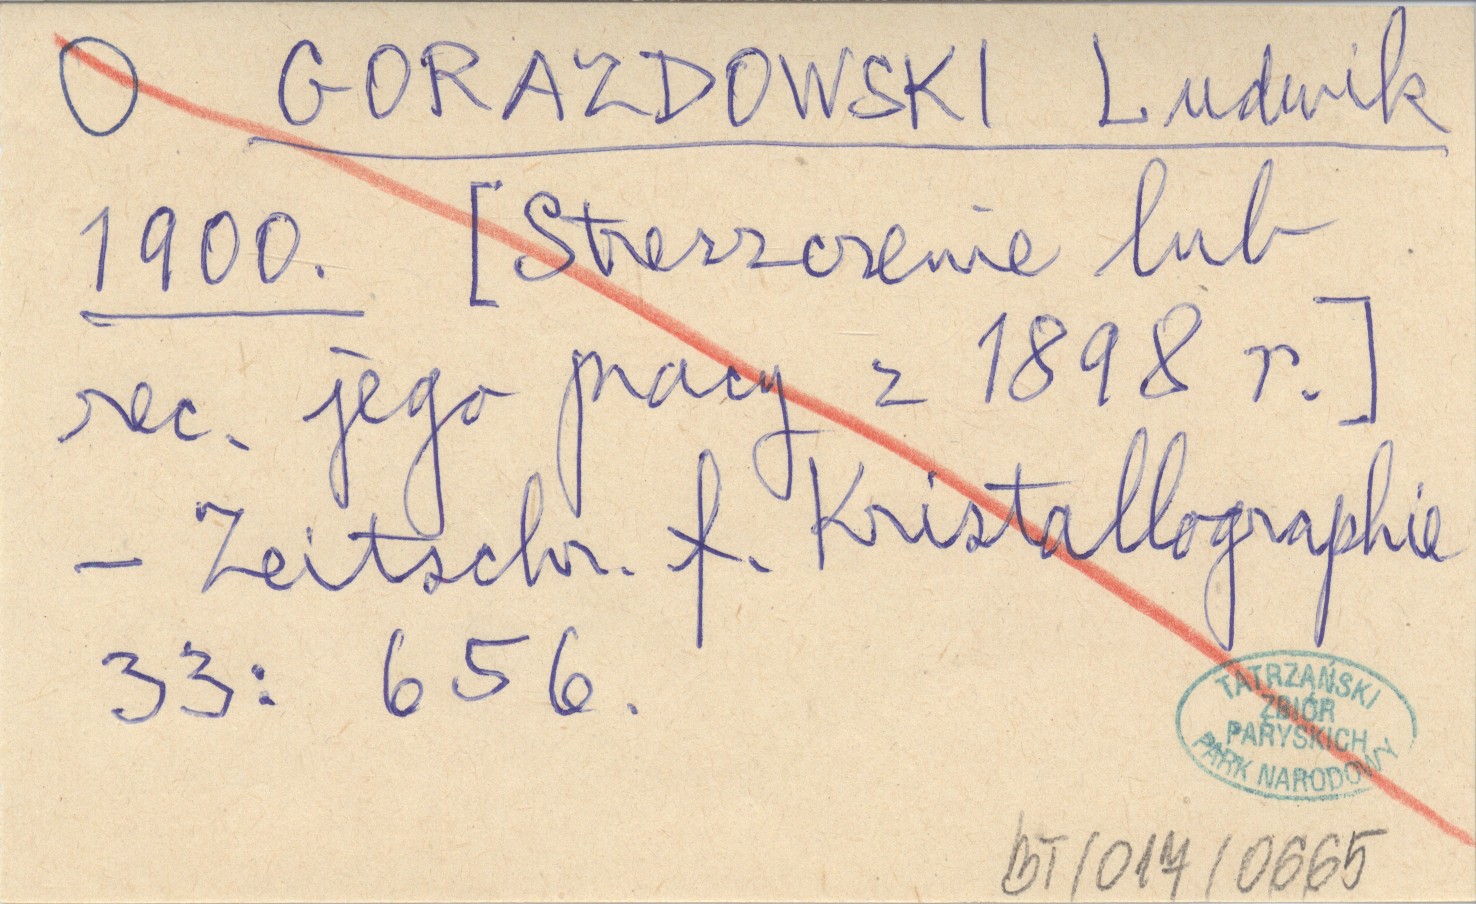 O GORAZDOWSKI Ludwik
1900. [Streszczenie lub
rec. jego pracy z 1898 r.]
- Zeitschr. f. Kristallographie
33: 656.
TATRZAŃSKI
ZBIÓR
PARYSKICH
PARK NARODOWY
BT/017/0665